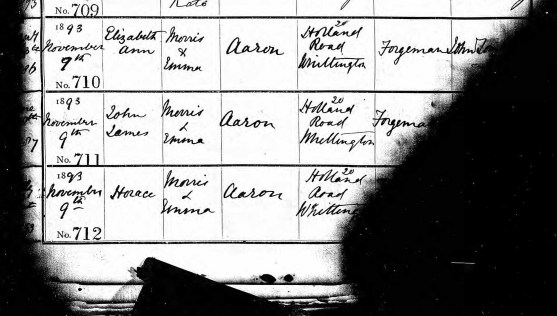 No. 709
Kate
1893
November
9th
No. 710
Elizabeth
Ann
Morris
&
Emma
Aaron
20
Holland
Road
Whittington
Forgeman
John
1893
November
9th
No. 711
John
James
Morris
&
Emma
Aaron
20
Holland
Road
Whittington
Forgema
1893
November
9th
No. 712
Horace
Morris
&
Emma
Aaron
20
Holland
Road
Whitting